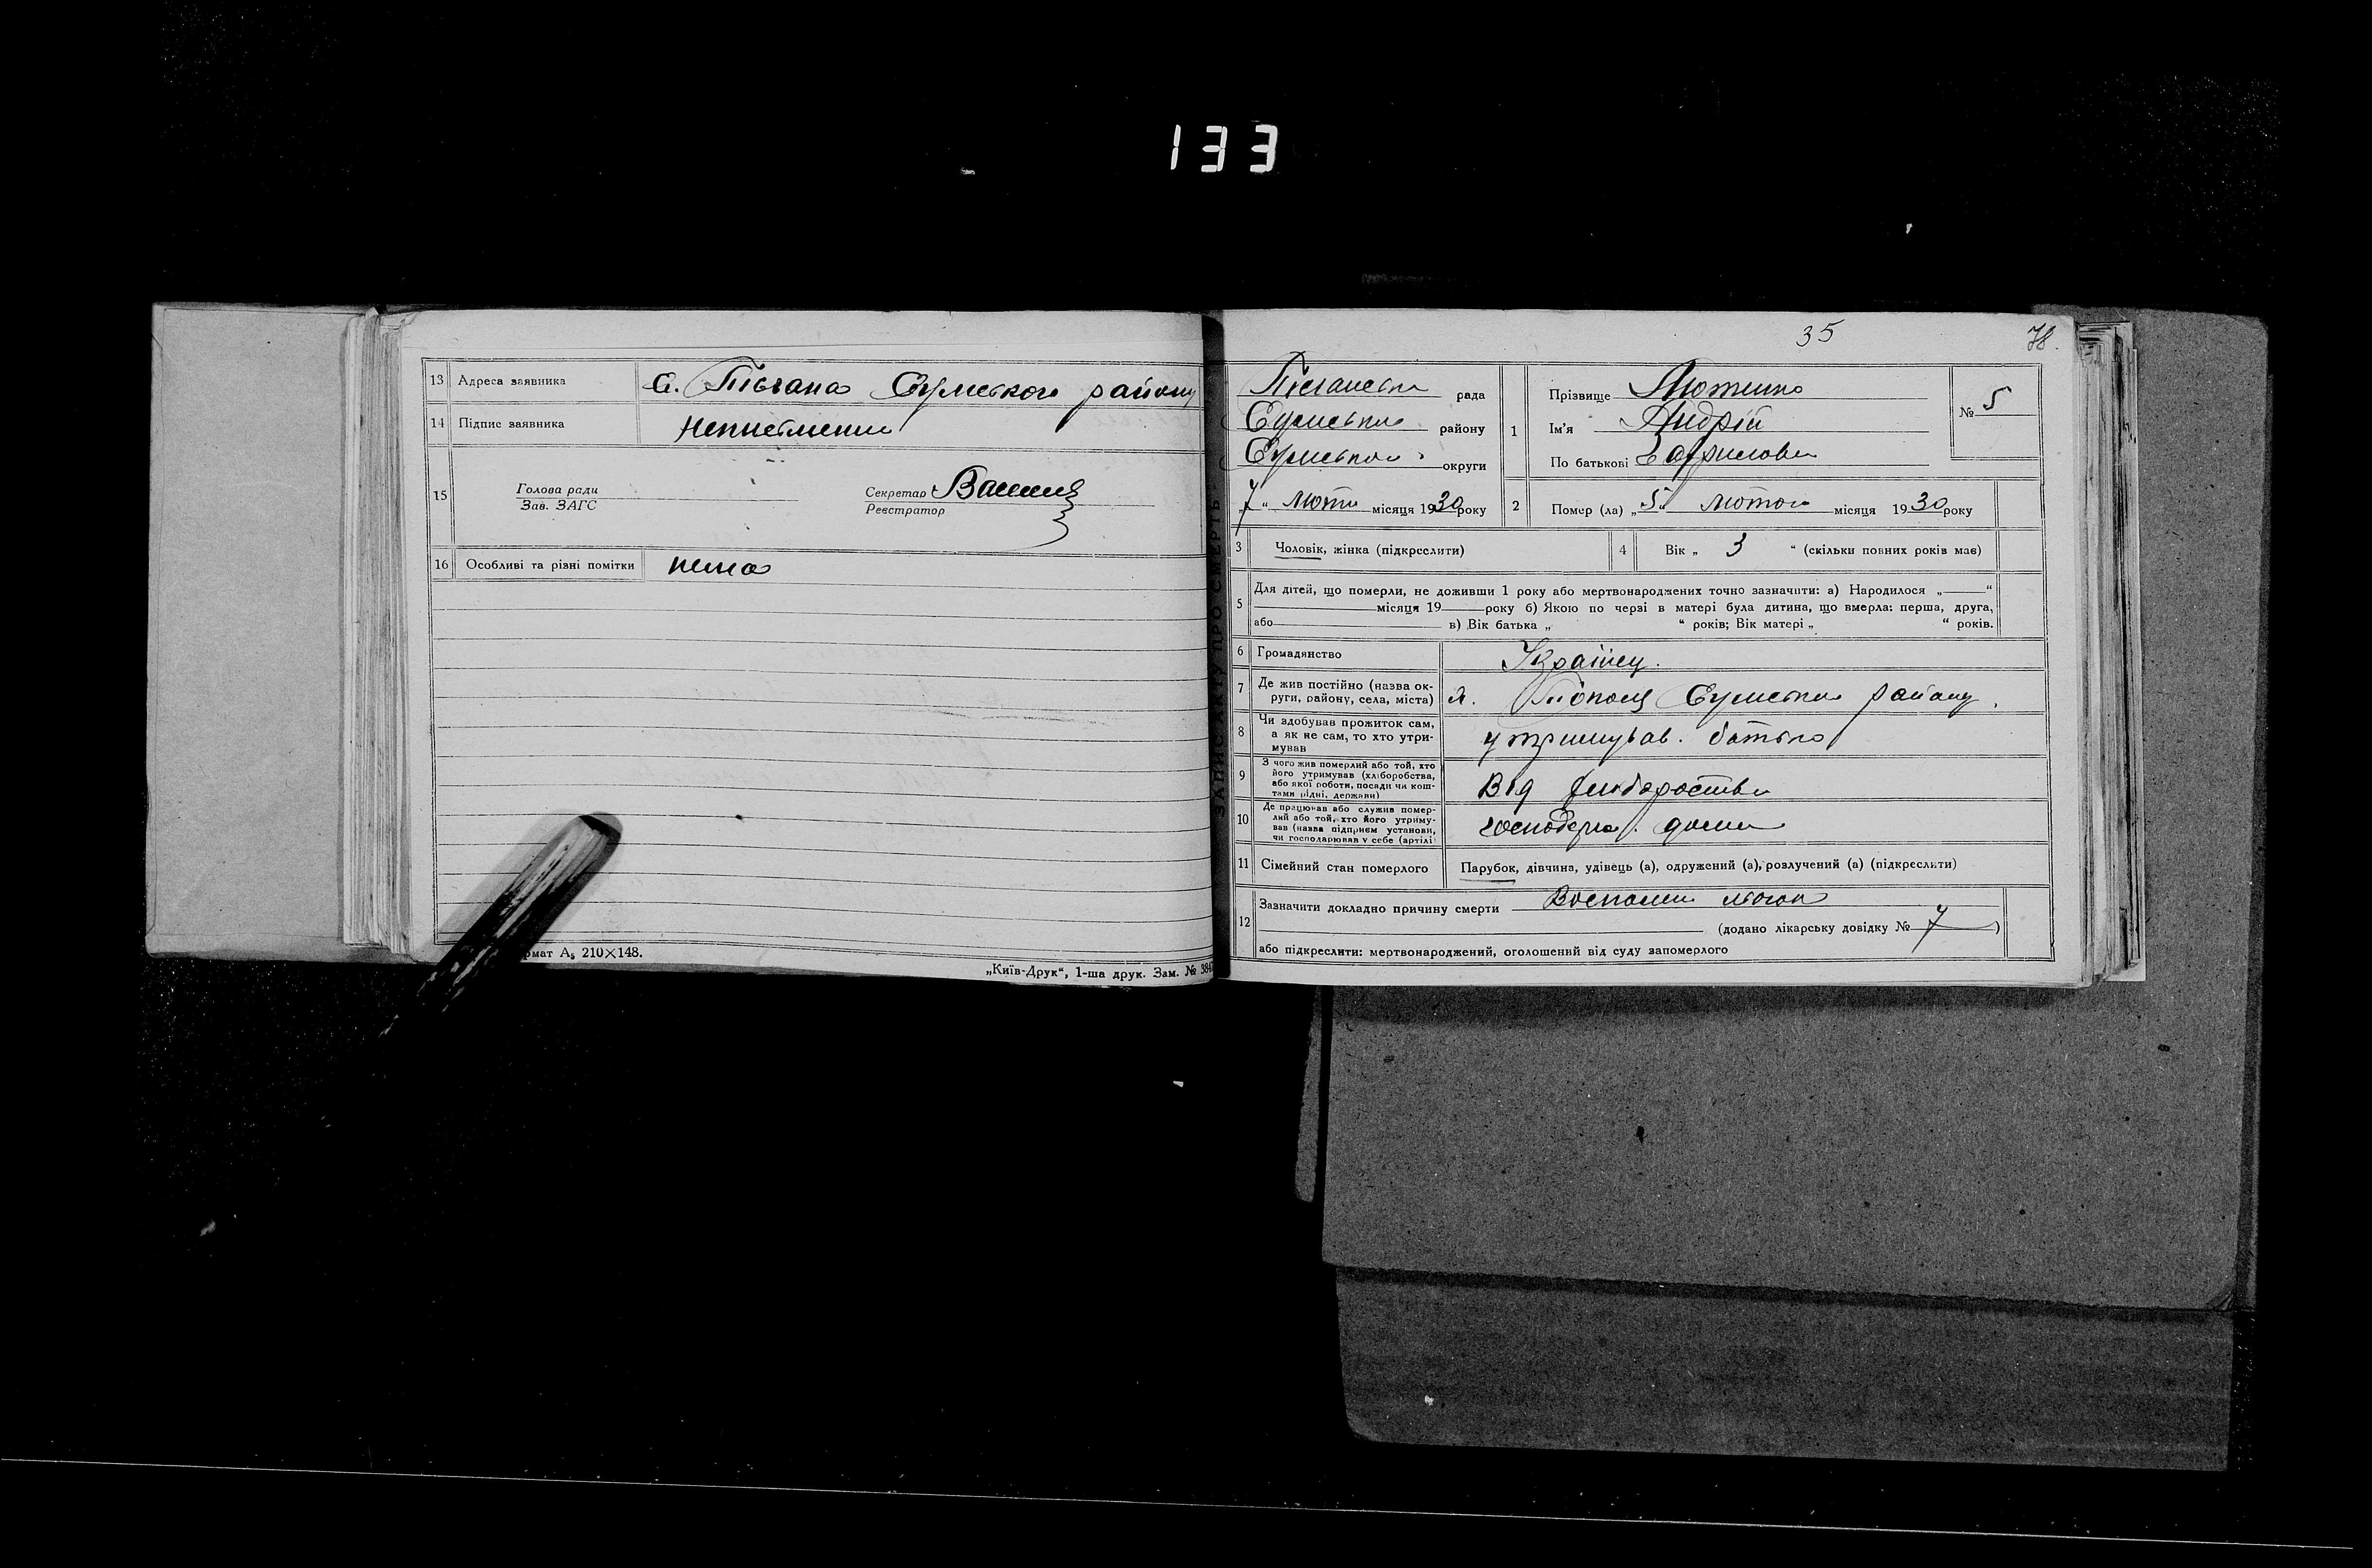 133
13 Адреса заявника с. Піщана Сумського району
14 Підпис заявника неписьменний
15 Голова ради
Зав. ЗАГС
Секретар
Реєстратор
16 Особливі та різні помітки нема
рмат А₅ 210×148.
„Київ-Друк“, 1-ша друк. Зам. №
35
78.
ЗАПИС АКТУ ПРО СМЕРТЬ
рада
Сумського району
Сумської округи
„7“ люто місяця 1930 року
1 Прізвище
Ім'я Андрій
По батькові
№ 5
2 Помер (ла) „5“ лютого місяця 1930 року
3 Чоловік, жінка (підкреслити)
4 Вік „ 3 “ (скільки повних років має)
5 Для дітей, що померли, не доживши 1 року або мертвонароджених точно зазначити: а) Народилося „ “
місяця 19 року б) Якою по черзі в матері була дитина, що вмерла: перша, друга,
або в) Вік батька „ “ років; Вік матері „ “ років.
6 Громадянство Українец.
7 Де жив постійно (назва ок-
руги, району, села, міста) Сумського району.
8 Чи здобував прожиток сам,
а як не сам, то хто утри-
мував утримував. батько
9 З чого жив померлий або той, хто
його утримував (хліборобства,
або якої роботи, посади чи кош-
тами рідні, держави) Від хліборобства
10 Де працював або служив помер-
лий або той, хто його утриму-
вав (назва підприєм установи,
чи господарював у себе (артілі
11 Сімейний стан померлого Парубок, дівчина, удівець (а), одружений (а), розлучений (а) (підкреслити)
12 Зазначити докладно причину смерти
(додано лікарську довідку № 7 )
або підкреслити: мертвонароджений, оголошений від суду запомерлого